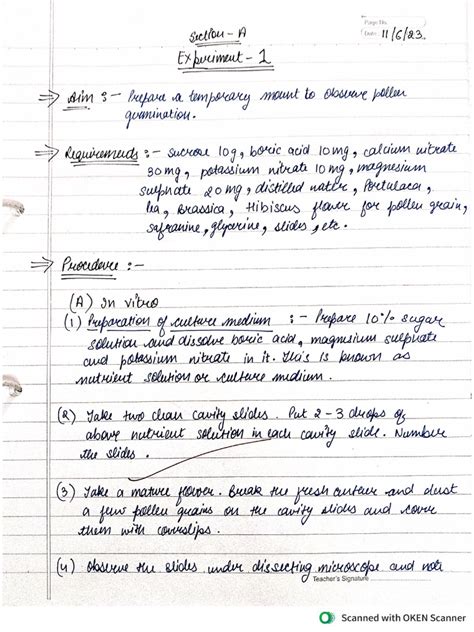 Page No.
Section - A
Date: 11/6/23.
Experiment - 1
⇒ Aim :- Prepare a temporary mount to observe pollen
germination.
⇒ Requirements :- sucrose 10g, boric acid 10mg, calcium nitrate
30mg, potassium nitrate 10mg, magnesium
sulphate 20mg, distilled water, Portulaca,
Pea, Brassica, Hibiscus flower for pollen grain,
safranine, glycerine, slides, etc.
⇒ Procedure :-
(A) In vitro
(1) Preparation of culture medium :- Prepare 10% sugar
solution and dissolve boric acid, magnesium sulphate
and potassium nitrate in it. This is known as
nutrient solution or culture medium.
(2) Take two clean cavity slides. Put 2-3 drops of
above nutrient solution in each cavity slide. Number
the slides.
(3) Take a mature flower. Break the fresh anther and dust
a few pollen grains on the cavity slides and cover
them with coverslips.
(4) Observe the slides under dissecting microscope and note
Teacher's Signature
Scanned with OKEN Scanner